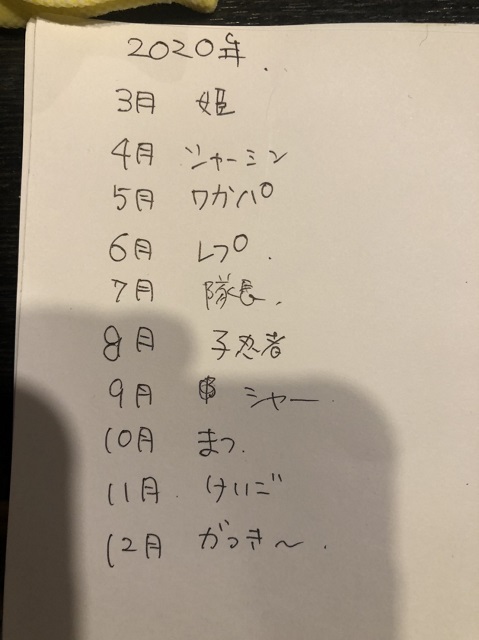 2020年
3月 姫
4月 ジャーミン
5月 ワカパ
6月 レプ
7月 隊長
8月 子忍者
9月 シャー
10月 まつ
11月 けいご
12月 がっき〜